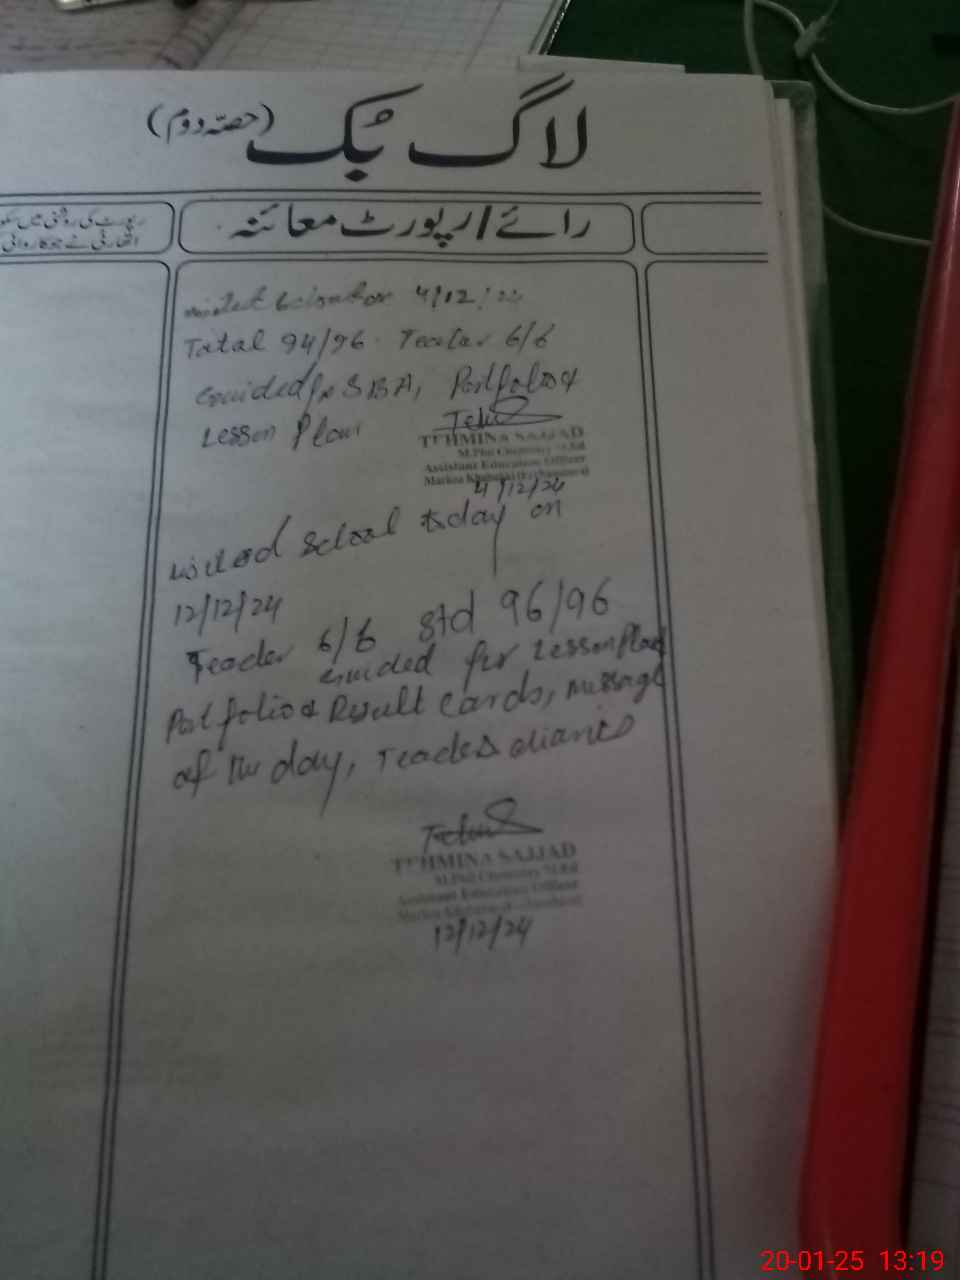 لاگ بُک (حصّہ دوم)
رائے/رپورٹ معائنہ
رپورٹ کی روشنی میں
اتھارٹی نے جو کارروائی
4/12/24
Total 94/96. Teacher 6/6
Guided for SBA, Portfolio &
Lesson Plan
TEHMINA SAJJAD
M.Phil Chemistry M.Ed
Assistant Education Officer
Markaz
4/12/24
visited School today on
12/12/24
Teacher 6/6 Std 96/96
Guided for Lesson Plan
Portfolio & Result Cards, Message
of the day, Teachers diaries
TEHMINA SAJJAD
M.Phil Chemistry M.Ed
Assistant Education Officer
Markaz
12/12/24
20-01-25 13:19